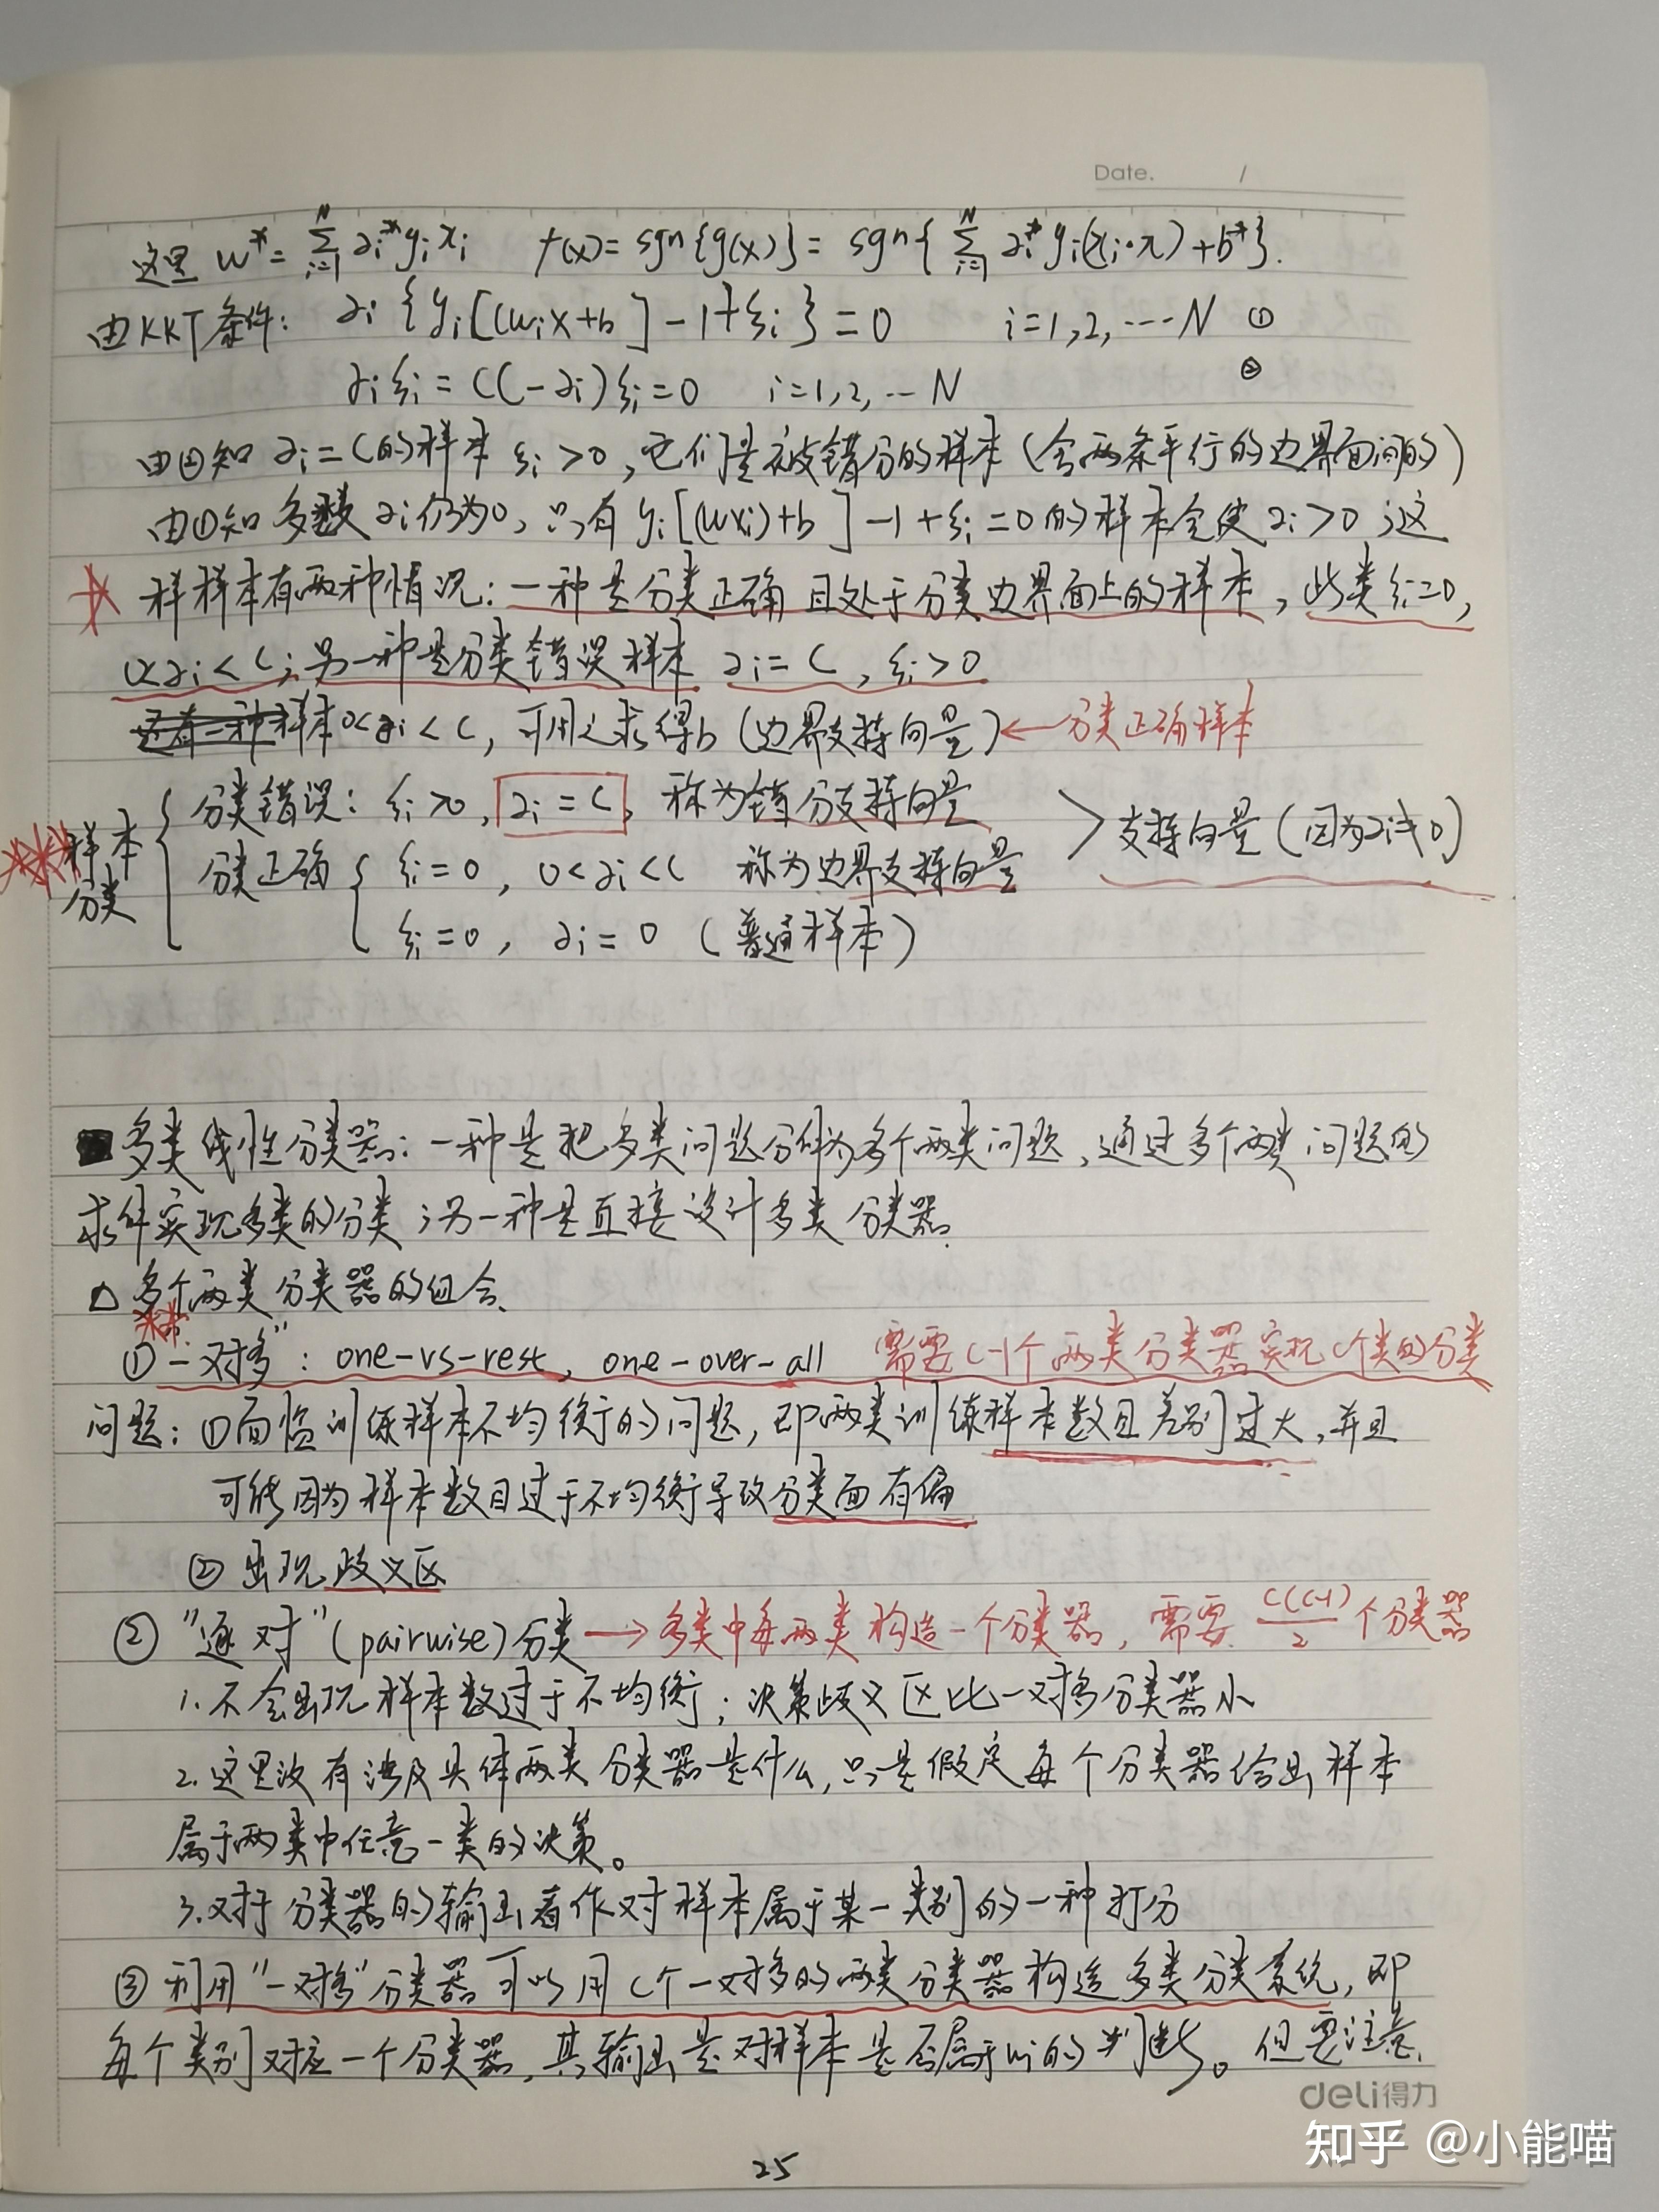 Date. /
这里 w* = Σ_{i=1}^{N} αi* yi xi f(x) = sgn{g(x)} = sgn{ Σ_{i=1}^{N} αi* yi(xi·x) + b* }.
由KKT条件: αi {yi[(wix+b] -1+ξi} = 0 i=1,2,…N ①
γiξi = (C-αi)ξi = 0 i=1,2,…N ②
由②知 αi = C的样本 ξi > 0, 它们是被错分的样本(含两条平行的边界面间的)
由①知多数αi仍为0, 只有yi[(wxi)+b] -1+ξi = 0的样本会使αi > 0; 这
样样本有两种情况: 一种是分类正确且处于分类边界面上的样本, 此类ξi=0,
0<αi<C; 另一种是分类错误样本 αi = C, ξi > 0
样本0<αi<C, 可用之求得b (边界支持向量) ← 分类正确样本
样本分类
分类错误: ξi > 0, αi = C, 称为错分支持向量
分类正确 ξi = 0, 0<αi<C 称为边界支持向量
> 支持向量 (因为αi≠0)
ξi = 0, αi = 0 (普通样本)
■多类线性分类器: 一种是把多类问题分解为多个两类问题, 通过多个两类问题的
求解实现多类的分类; 另一种是直接设计多类分类器.
△ 多个两类分类器的组合.
①“一对多”: one-vs-rest, one-over-all 需要c-1个两类分类器实现c个类的分类
问题: ①面临训练样本不均衡的问题, 即两类训练样本数目差别过大, 并且
可能因为样本数目过于不均衡导致分类面有偏
② 出现歧义区
② “逐对”(pairwise)分类 → 多类中每两类构造一个分类器, 需要 c(c-1)/2 个分类器
1. 不会出现样本数过于不均衡; 决策歧义区比一对多分类器小
2. 这里没有涉及具体两类分类器是什么, 只是假定每个分类器给出样本
属于两类中任意一类的决策。
3. 对于分类器的输出看作对样本属于某一类别的一种打分
③ 利用“一对多”分类器可以用c个一对多的两类分类器构造多类分类系统, 即
每个类别对应一个分类器, 其输出是对样本是否属于wi的判断。但要注意,
deli得力
知乎 @小能喵
25